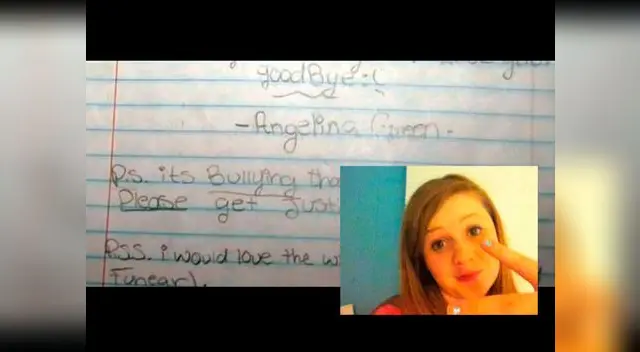 goodBye :(
-Angelina Green.
P.s. its Bullying tha
Please get Just
P.SS. i would love the w
Funearl.